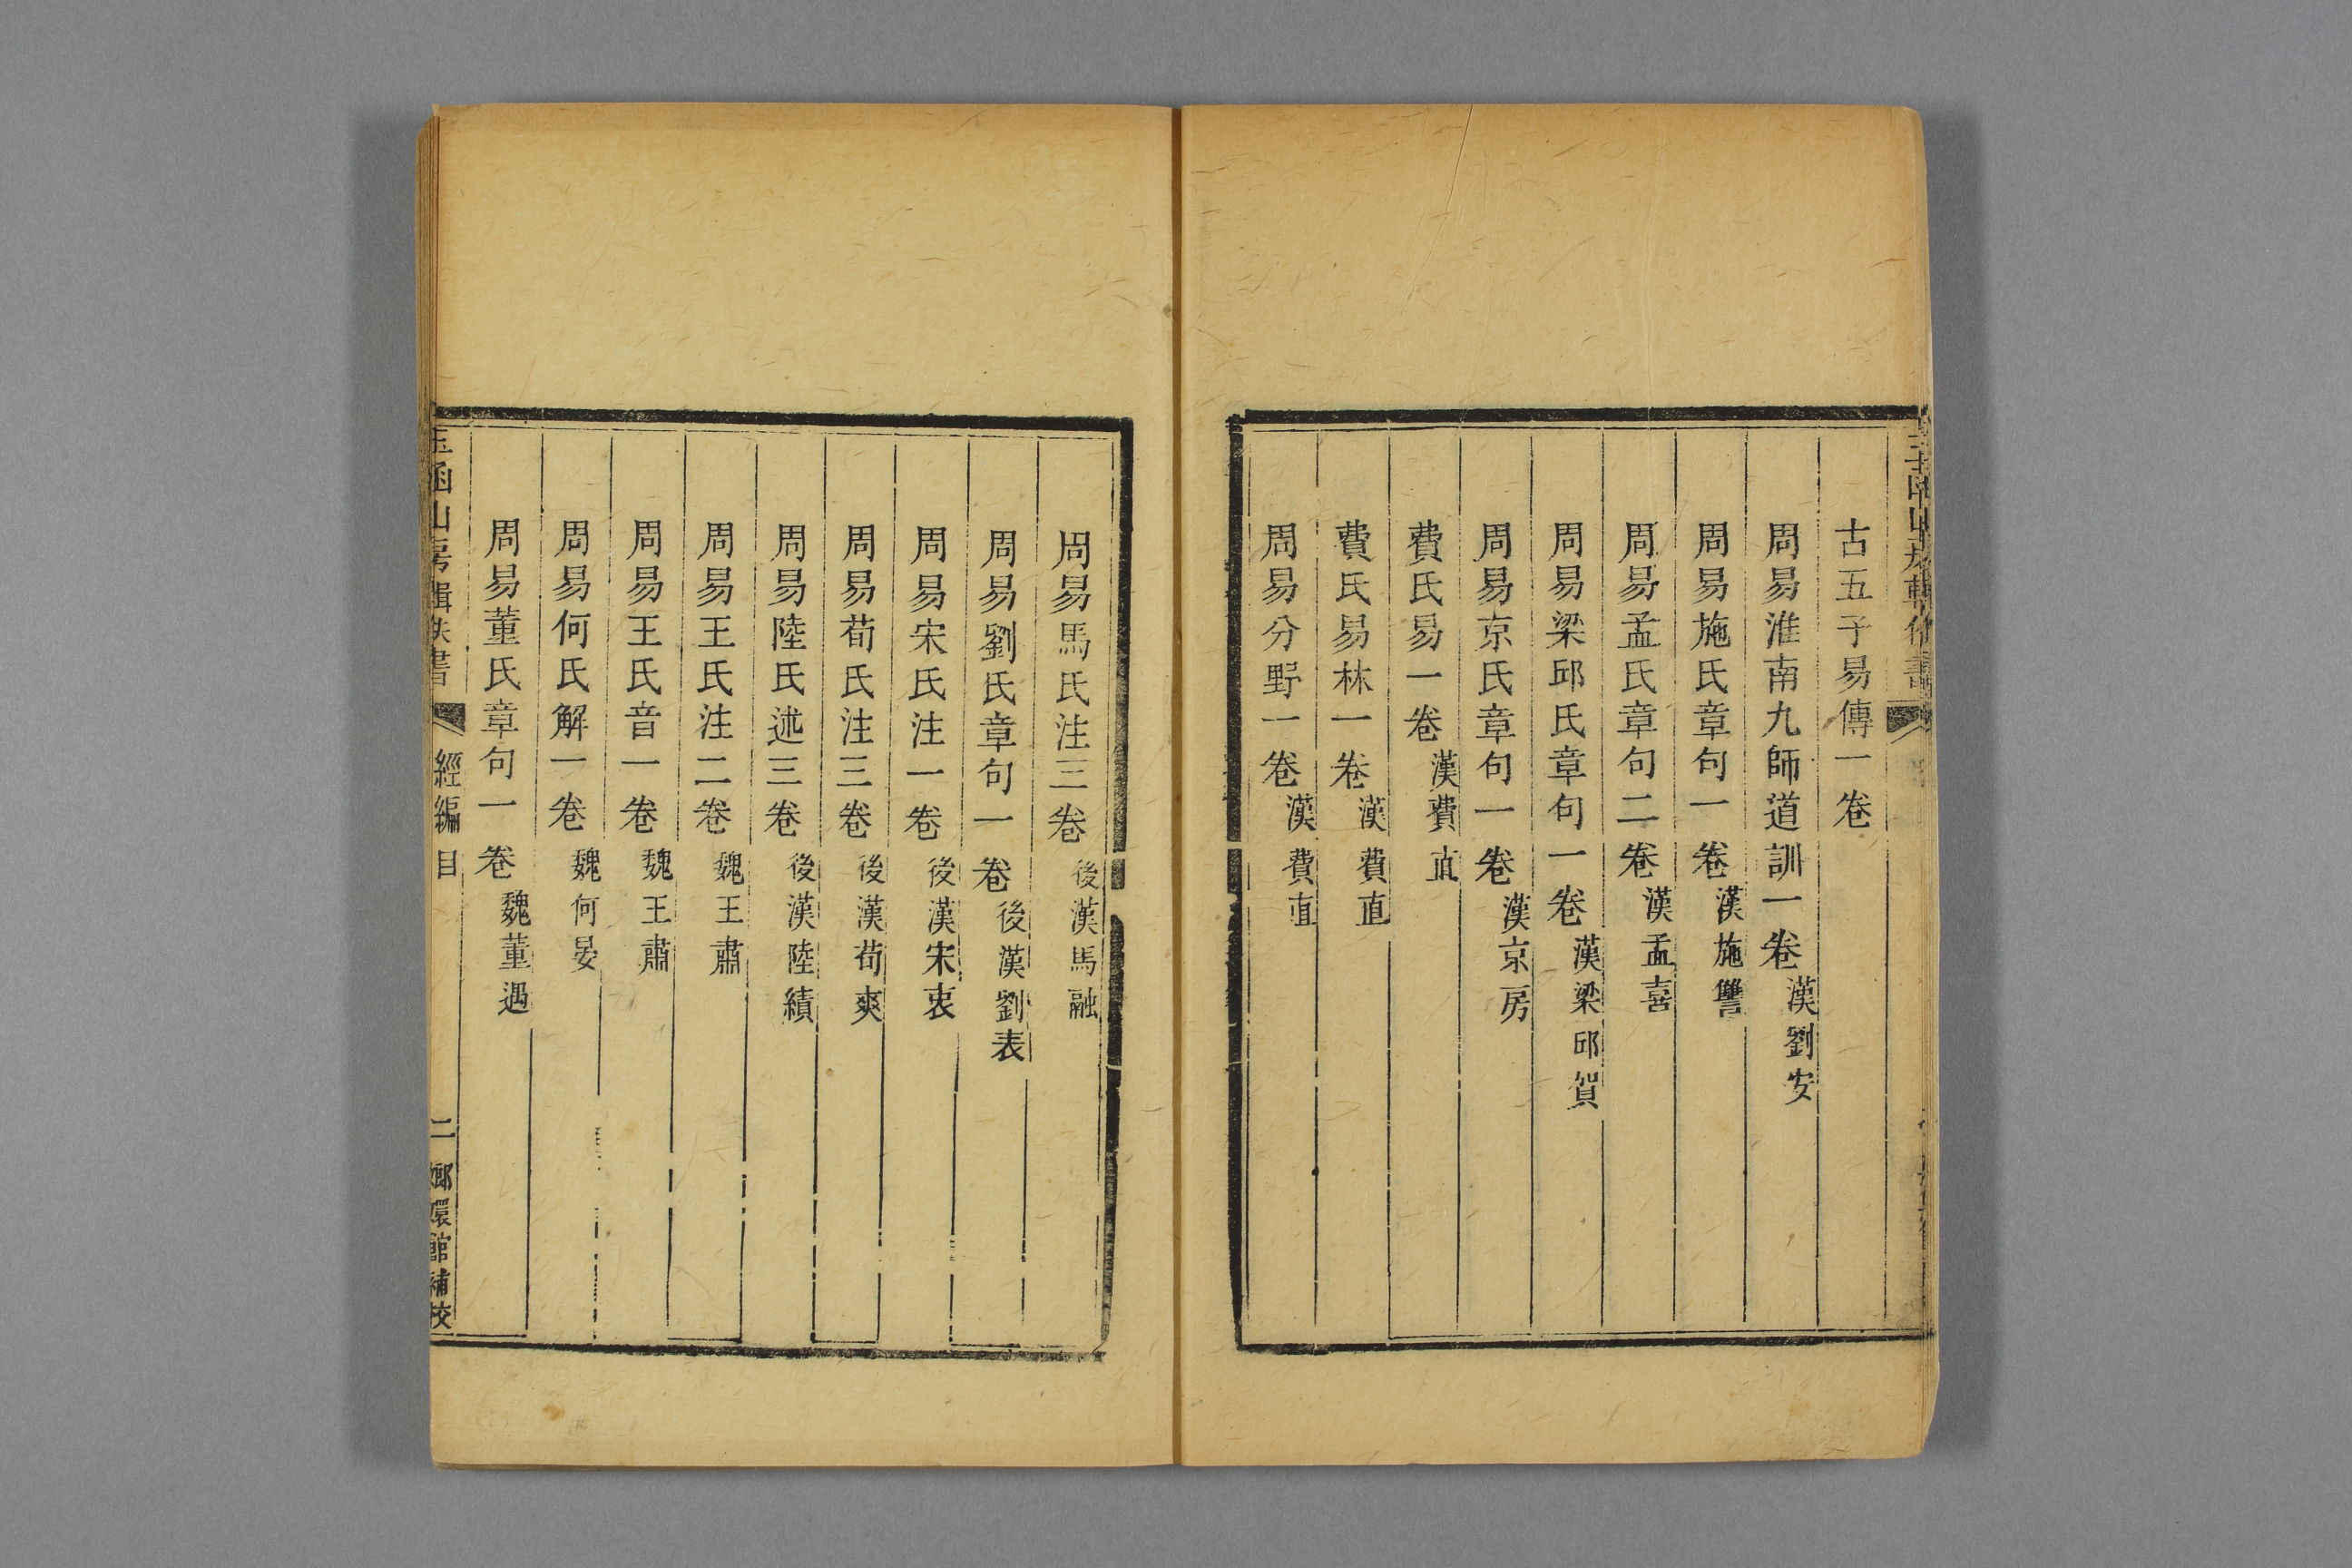 古五子易傳一卷
周易淮南九師道訓一卷 漢劉安
周易施氏章句一卷 漢施讐
周易孟氏章句二卷 漢孟喜
周易梁邱氏章句一卷 漢梁邱賀
周易京氏章句一卷 漢京房
費氏易一卷 漢費直
費氏易林一卷 漢費直
周易分野一卷 漢費直
周易馬氏注三卷 後漢馬融
周易劉氏章句一卷 後漢劉表
周易宋氏注一卷 後漢宋衷
周易荀氏注三卷 後漢荀爽
周易陸氏述三卷 後漢陸績
周易王氏注二卷 魏王肅
周易王氏音一卷 魏王肅
周易何氏解一卷 魏何晏
周易董氏章句一卷 魏董遇
玉函山房輯佚書 經編目 二 嫏嬛館補校